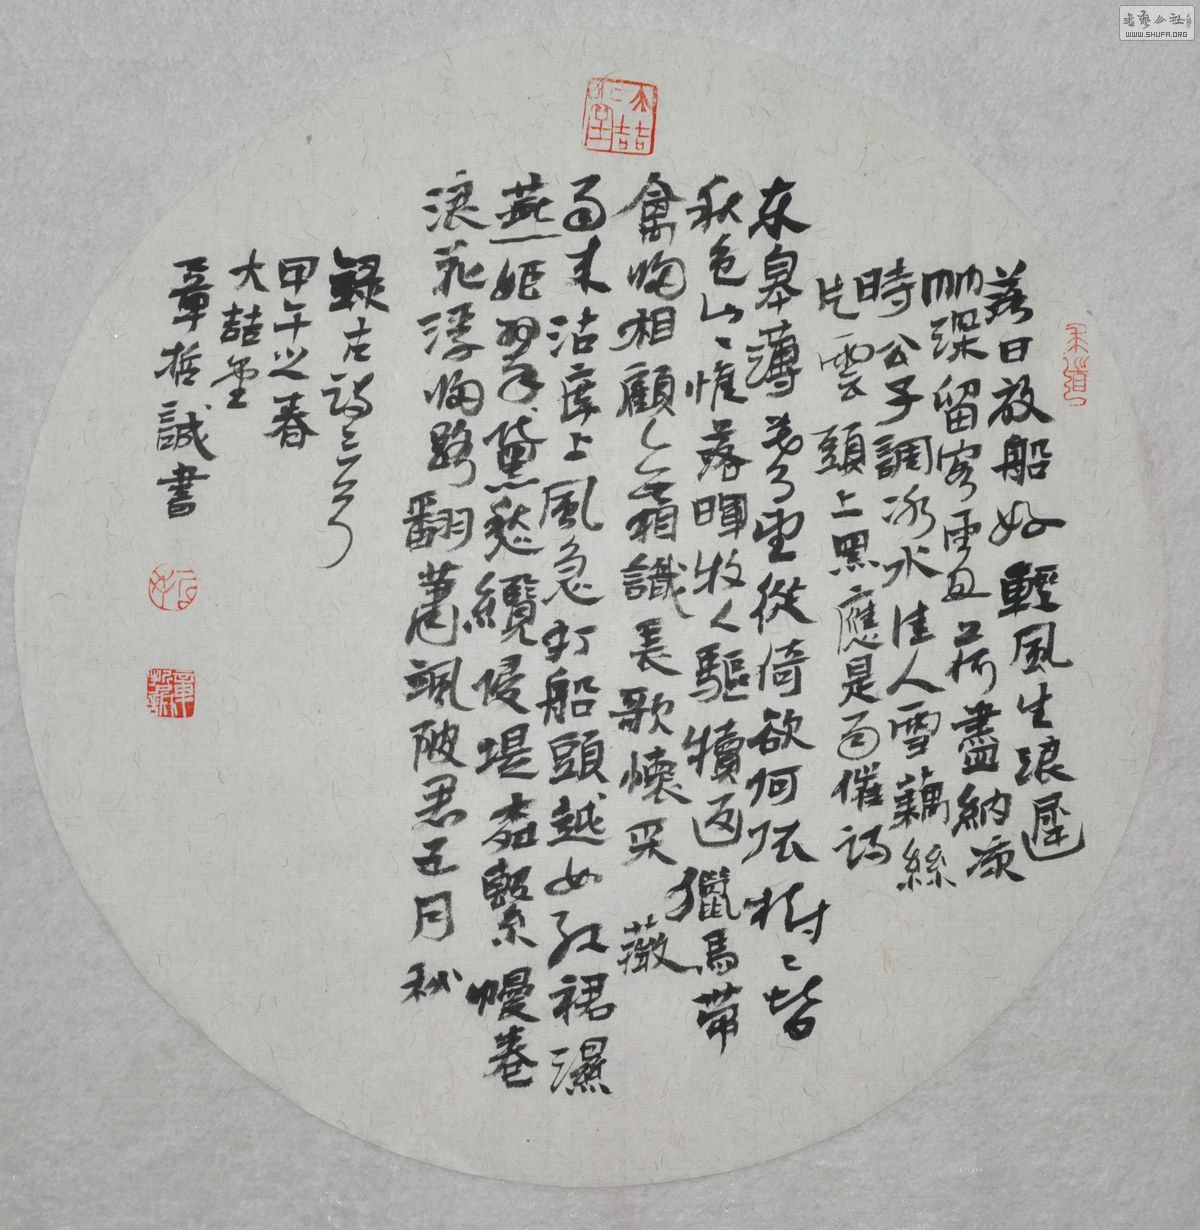 落日放船好輕風生浪遲
竹深留客處荷盡納凉
時公子調冰水佳人雪藕絲
片雲頭上黑應是雨催詩
東皋薄暮望徙倚欲何依樹〻皆
秋色山〻惟落暉牧人驅犢返獵馬帶
禽歸相顧無相識長歌懷采薇
雨来沾席上風急打船頭越女紅裙濕
燕姬翠黛愁纜侵堤柳繫幔卷
浪花浮歸路翻蕭颯陂塘五月秋
錄古詩三首
甲午之春
大喆堂
章哲誠書
書藝公社
WWW.SHUFA.ORG